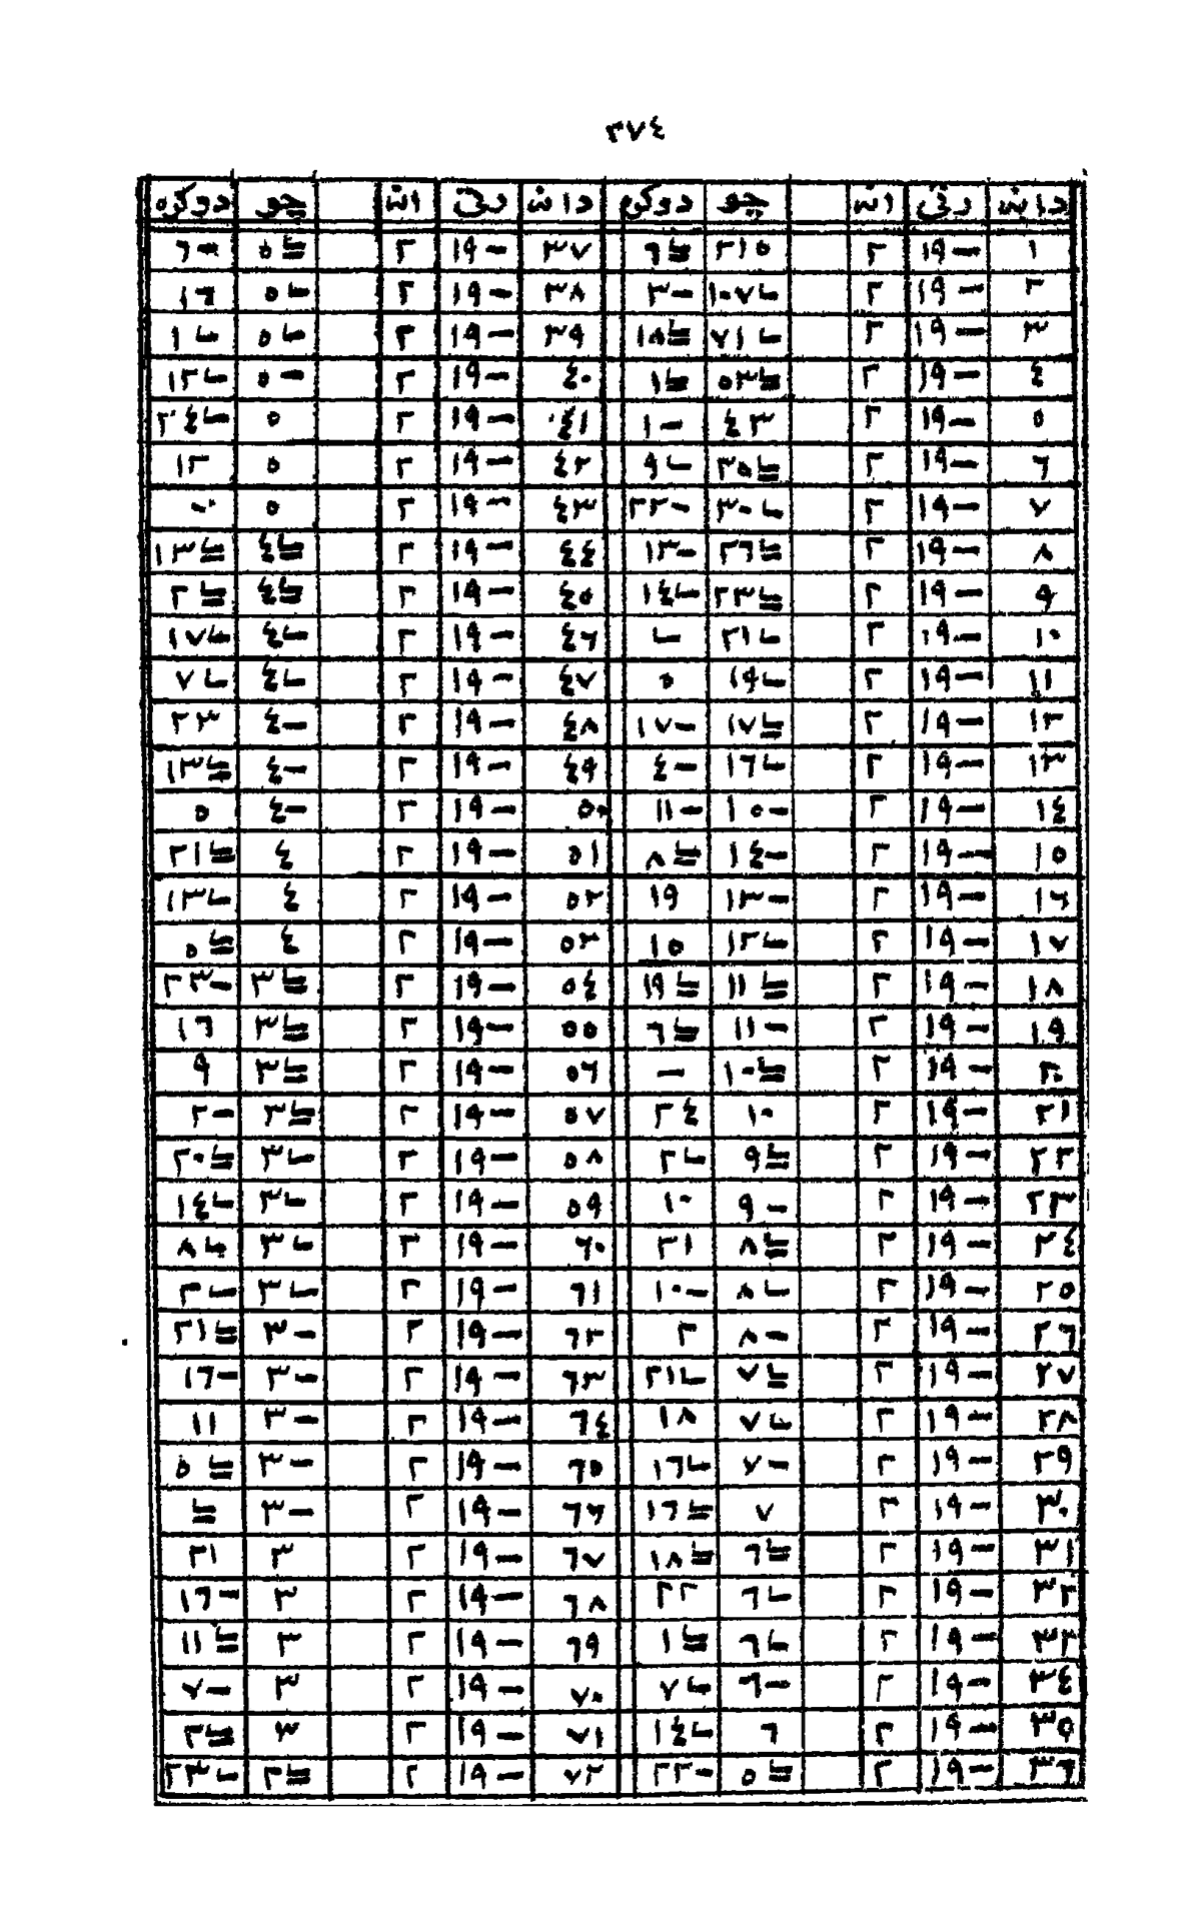 ٣٧٤
دانه رتي انه چو دوكره دانه رتي انه چو دوكره
١ ١٩- ٢ ٢١٥ ٦ـا̲ ٣٧ ١٩- ٢ ٥ـا̲ ٦-
٢ ١٩- ٢ ١٠٧ـا ٣- ٣٨ ١٩- ٢ ٥ـا ١٦
٣ ١٩- ٢ ٧١ـا ١٥ـا̲ ٣٩ ١٩- ٢ ٥ـا ١ـا
٤ ١٩- ٢ ٥٣ـا̲ ١ـا̲ ٤٠ ١٩- ٢ ٥- ١٢ـا
٥ ١٩- ٢ ٤٣ ١- ٤١ ١٩- ٢ ٥ ٢٤ـا
٦ ١٩- ٢ ٣٥ـا̲ ٩ـا ٤٢ ١٩- ٢ ٥ ١٢
٧ ١٩- ٢ ٣٠ـا ٢٢- ٤٣ ١٩- ٢ ٥ ٠-
٨ ١٩- ٢ ٢٦ـا̲ ١٣- ٤٤ ١٩- ٢ ٤ـا̲ ١٣ـا̲
٩ ١٩- ٢ ٢٣ـا̲ ١٤ـا ٤٥ ١٩- ٢ ٤ـا̲ ٢ـا̲
١٠ ١٩- ٢ ٢١ـا ـا ٤٦ ١٩- ٢ ٤ـا ١٧ـا
١١ ١٩- ٢ ١٩ـا ٥ ٤٧ ١٩- ٢ ٤ـا ٧ـا
١٢ ١٩- ٢ ١٧ـا̲ ١٧- ٤٨ ١٩- ٢ ٤- ٢٣
١٣ ١٩- ٢ ١٦ـا ٤- ٤٩ ١٩- ٢ ٤- ١٣ـا̲
١٤ ١٩- ٢ ١٥- ١١- ٥٠ ١٩- ٢ ٤- ٥
١٥ ١٩- ٢ ١٤- ٨ـا̲ ٥١ ١٩- ٢ ٤ ٢١ـا̲
١٦ ١٩- ٢ ١٣- ١٩ ٥٢ ١٩- ٢ ٤ ١٣ـا
١٧ ١٩- ٢ ١٢ـا ١٥ ٥٣ ١٩- ٢ ٤ ٥ـا̲
١٨ ١٩- ٢ ١١ـا̲ ١٩ـا̲ ٥٤ ١٩- ٢ ٣ـا̲ ٢٣-
١٩ ١٩- ٢ ١١- ٦ـا̲ ٥٥ ١٩- ٢ ٣ـا̲ ١٦
٢٠ ١٩- ٢ ١٠ـا̲ - ٥٦ ١٩- ٢ ٣ـا̲ ٩
٢١ ١٩- ٢ ١٠ ٢٤ ٥٧ ١٩- ٢ ٣ـا̲ ٢-
٢٢ ١٩- ٢ ٩ـا̲ ٢ـا ٥٨ ١٩- ٢ ٣ـا ٢٠ـا̲
٢٣ ١٩- ٢ ٩- ١٠ ٥٩ ١٩- ٢ ٣ـا ١٤ـا
٢٤ ١٩- ٢ ٨ـا̲ ٢١ ٦٠ ١٩- ٢ ٣ـا ٨ـا
٢٥ ١٩- ٢ ٨ـا ١٠- ٦١ ١٩- ٢ ٣ـا ٢ـا
٢٦ ١٩- ٢ ٨- ٢ ٦٢ ١٩- ٢ ٣- ٢١ـا̲
٢٧ ١٩- ٢ ٧ـا̲ ٢١ـا ٦٣ ١٩- ٢ ٣- ١٦-
٢٨ ١٩- ٢ ٧ـا ١٨ ٦٤ ١٩- ٢ ٣- ١١
٢٩ ١٩- ٢ ٧- ١٦ـا ٦٥ ١٩- ٢ ٣- ٥ـا̲
٣٠ ١٩- ٢ ٧ ١٦ـا̲ ٦٦ ١٩- ٢ ٣- ـا̲
٣١ ١٩- ٢ ٦ـا̲ ١٨ـا̲ ٦٧ ١٩- ٢ ٣ ٢١
٣٢ ١٩- ٢ ٦ـا ٢٢ ٦٨ ١٩- ٢ ٣ ١٦-
٣٣ ١٩- ٢ ٦ـا ١ـا̲ ٦٩ ١٩- ٢ ٣ ١١ـا̲
٣٤ ١٩- ٢ ٦- ٧ـا ٧٠ ١٩- ٢ ٣ ٧-
٣٥ ١٩- ٢ ٦ ١٤ـا ٧١ ١٩- ٢ ٣ ٢ـا̲
٣٦ ١٩- ٢ ٥ـا̲ ٢٢- ٧٢ ١٩- ٢ ٢ـا̲ ٢٣ـا